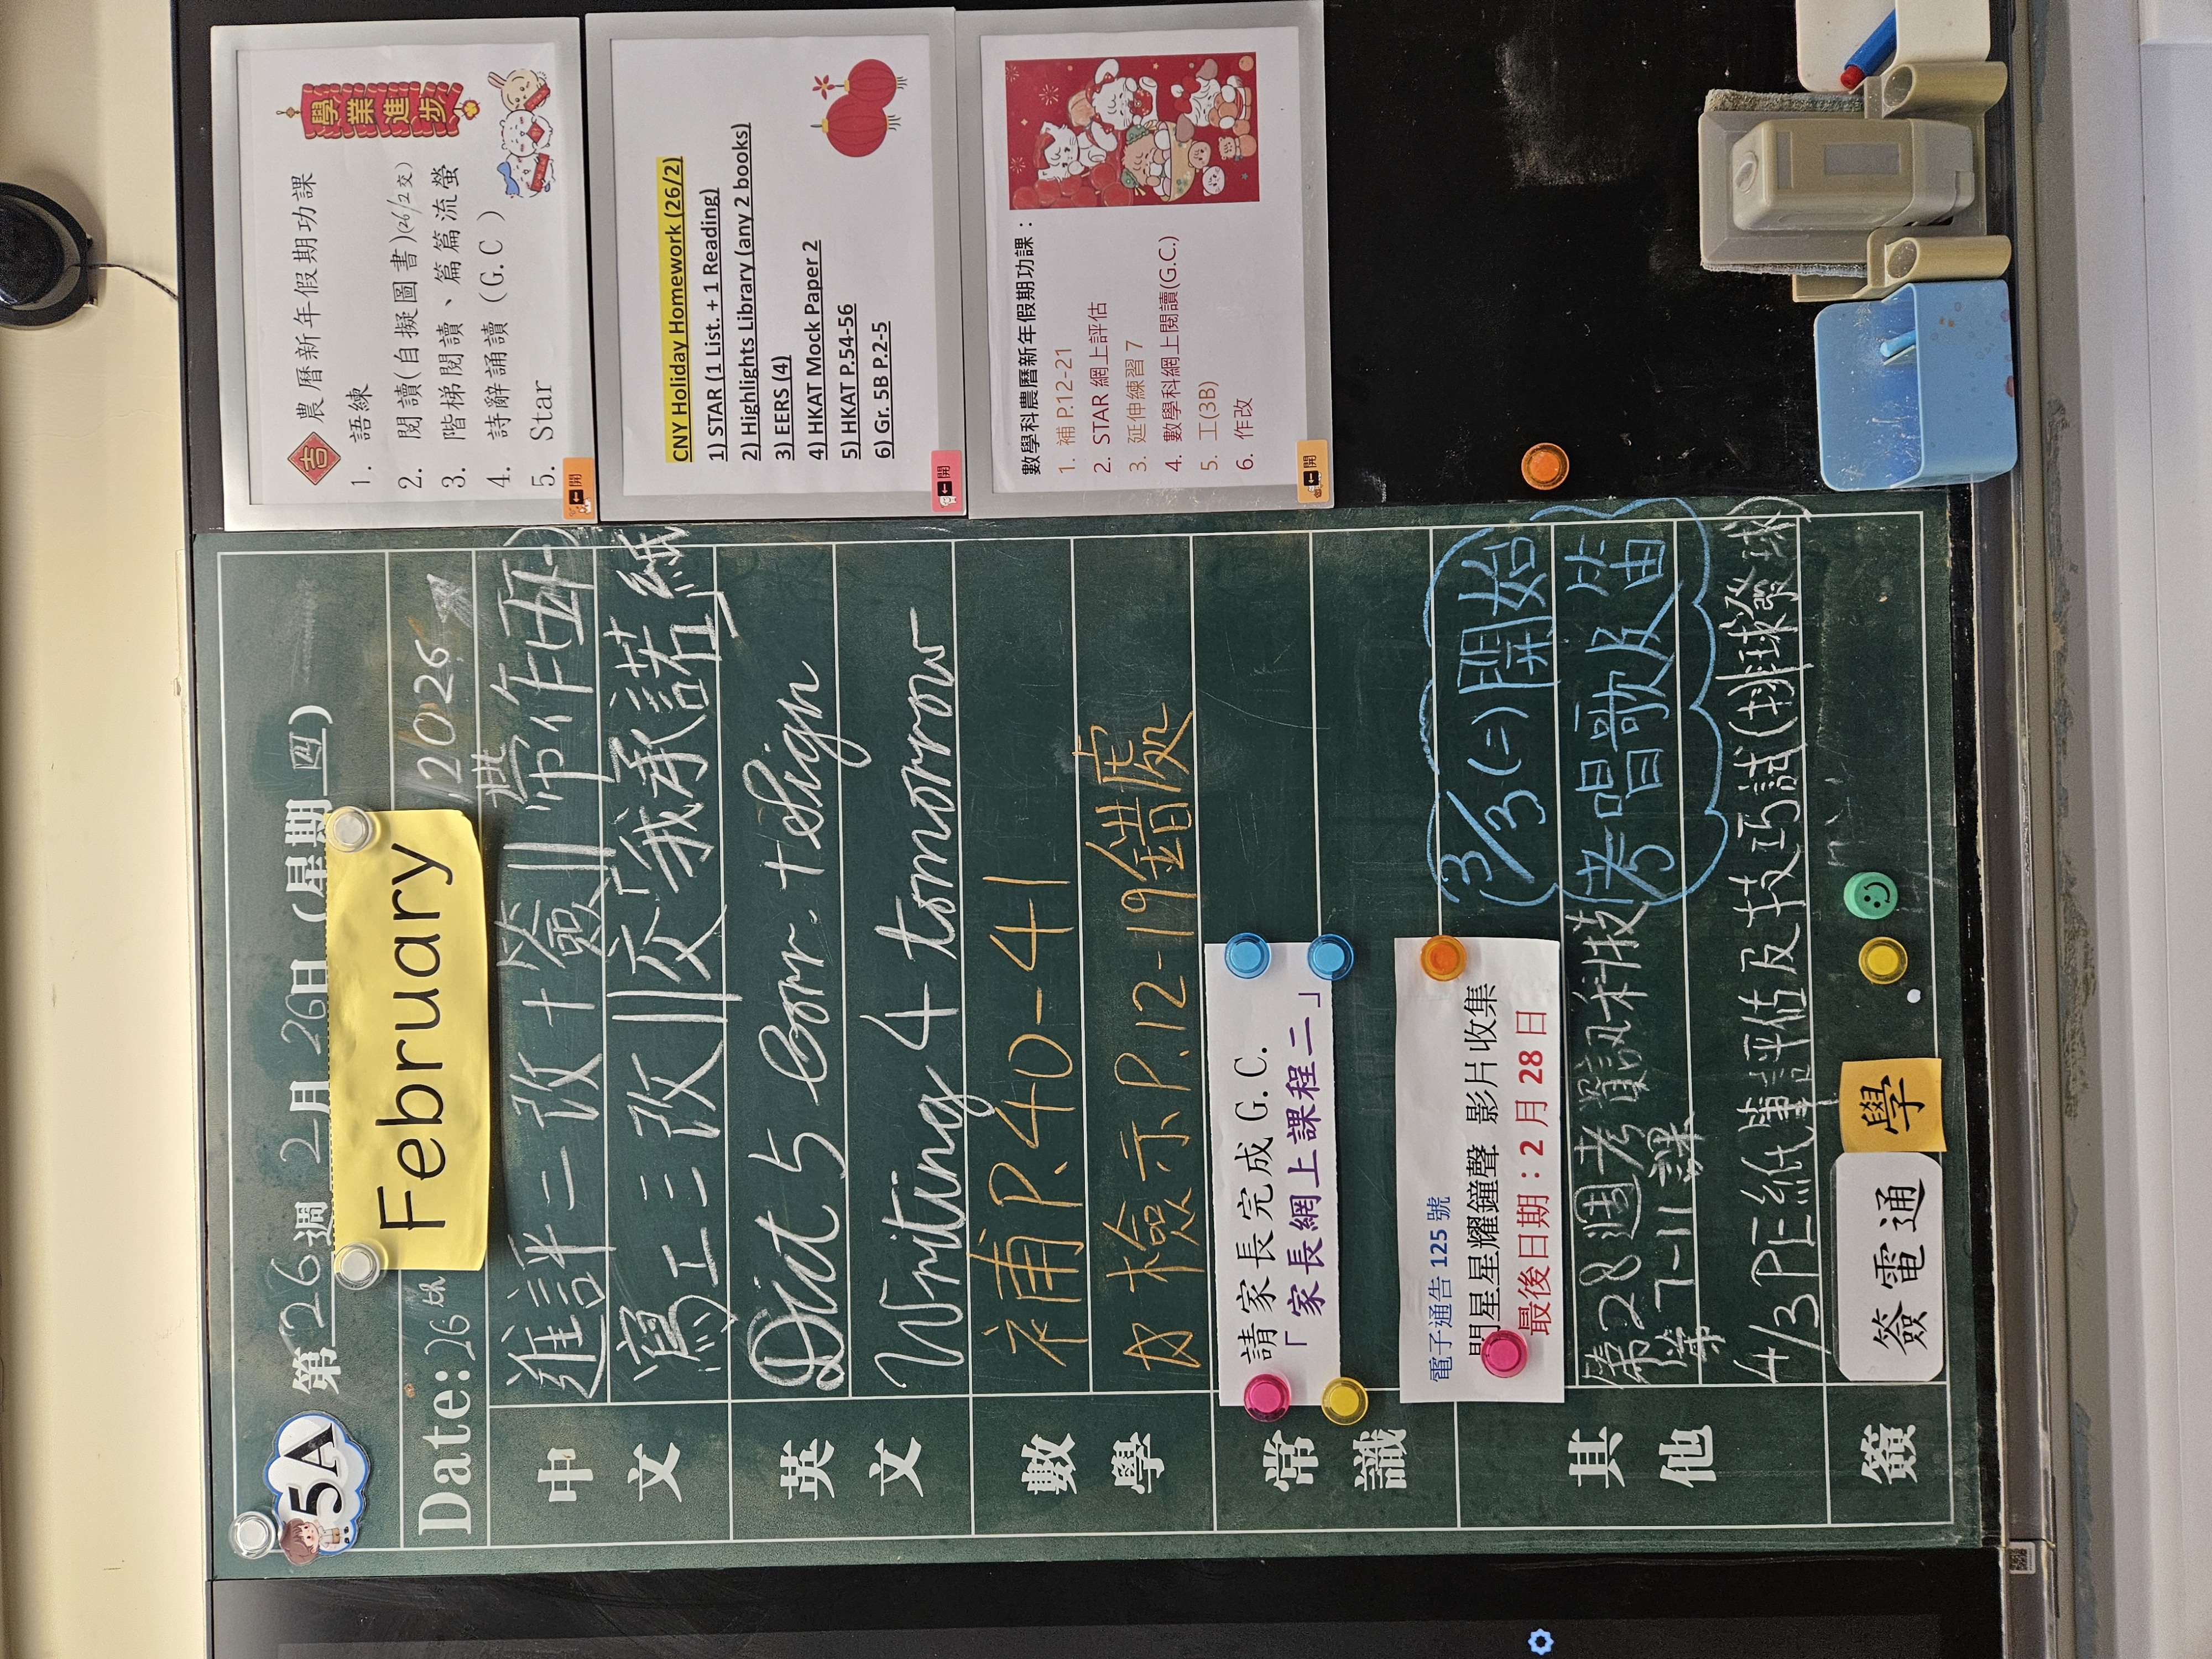 5A
第 26 週 2 月 26 日 (星期 四)
Date: 26th February, 2026
中文
進評二改+簽||帶作西
寫工三改||交「我承諾」紙
英文
Dict 5 corr. + sign
Writing 4 tomorrow
數學
補P.40-41
檢示P.12-19錯處
常識
請家長完成 G.C.
「家長網上課程二」
其他
電子通告 125 號
閃星星耀鐘聲 影片收集
最後日期：2 月 28 日
3/3(二)開始
考唱歌及笛
第28週考資訊科技
第7-11課
4/3PE紙筆評估及技巧試(排球發球)
簽
簽電通
學
學業進步
吉
農曆新年假期功課
1. 語練
2. 閱讀(自擬圖書)(26/2交)
3. 階梯閱讀、篇篇流螢
4. 詩辭誦讀 (G.C)
5. Star
開
CNY Holiday Homework (26/2)
1) STAR (1 List. + 1 Reading)
2) Highlights Library (any 2 books)
3) EERS (4)
4) HKAT Mock Paper 2
5) HKAT P.54-56
6) Gr. 5B P.2-5
開
數學科農曆新年假期功課：
1. 補 P.12-21
2. STAR 網上評估
3. 延伸練習 7
4. 數學科網上閱讀(G.C.)
5. 工(3B)
6. 作改
開